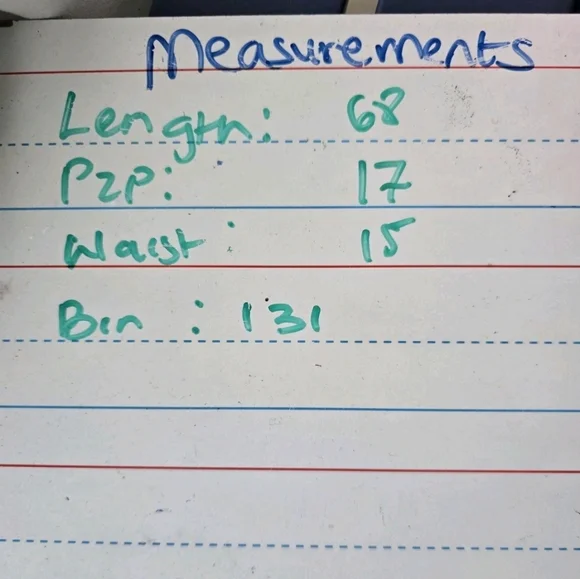 Measurements
Length: 68
P2P: 17
Waist: 15
Bin : 131